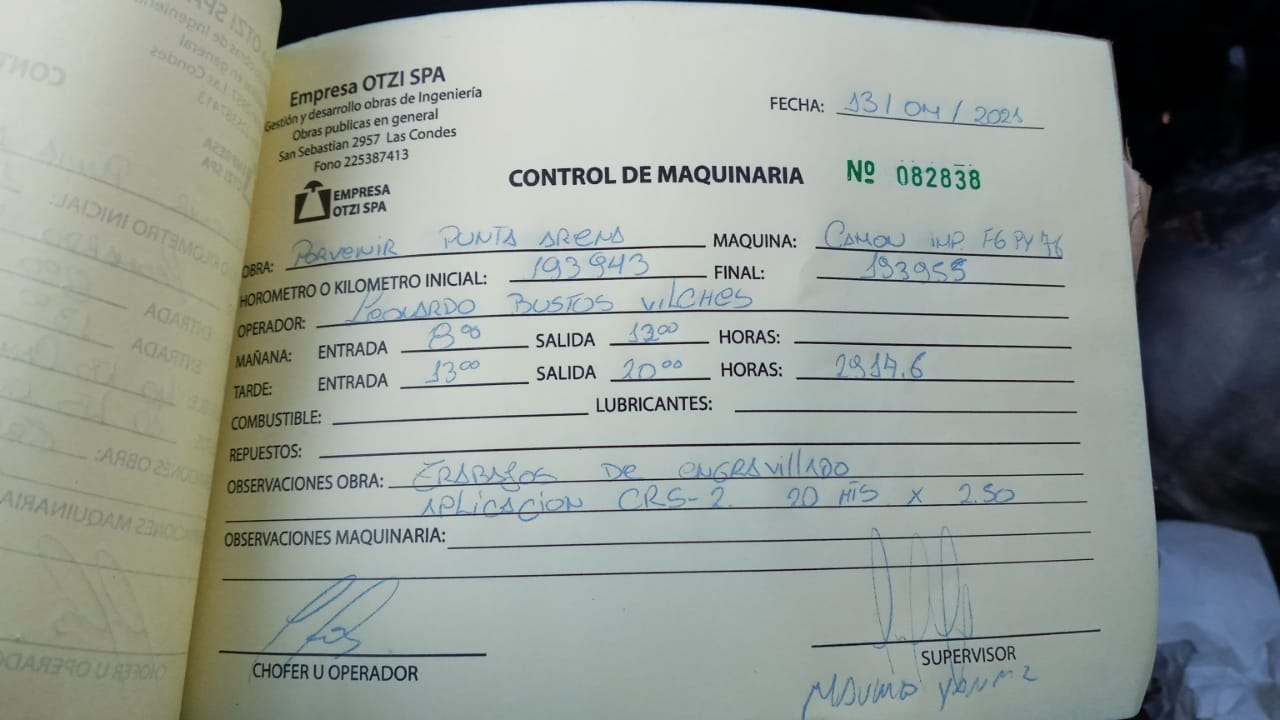 Empresa OTZI SPA
Gestión y desarrollo obras de Ingeniería
Obras publicas en general
San Sebastian 2957 Las Condes
Fono 225387413
EMPRESA
OTZI SPA
FECHA: 13/04/2021
CONTROL DE MAQUINARIA Nº 082838
OBRA: Porvenir Punta Arena MAQUINA: Camon imp. FGPY76
HOROMETRO O KILOMETRO INICIAL: 193943 FINAL: 193955
OPERADOR: Leonardo Bustos Vilches
MAÑANA: ENTRADA 8:00 SALIDA 13:00 HORAS:
TARDE: ENTRADA 13:00 SALIDA 20:00 HORAS: 2914.6
COMBUSTIBLE: LUBRICANTES:
REPUESTOS:
OBSERVACIONES OBRA: Trabajos de engravillado
Aplicacion CRS-2. 20 x 2.50
OBSERVACIONES MAQUINARIA:
CHOFER U OPERADOR
SUPERVISOR